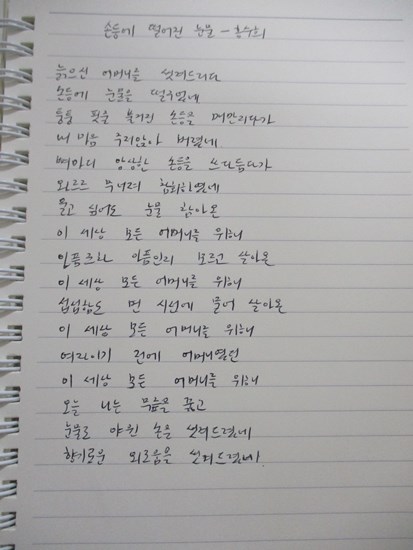 손등에 떨어진 눈물 - 홍수희
늙으신 어머니를 씻겨드리다
손등에 눈물을 떨구었네
퉁퉁 핏줄 불거진 손등을 매만지다가
내 마음 주저앉아 버렸네
뼈마디 앙상한 손등을 쓰다듬다가
와르르 무너져 참회하였네
울고 싶어도 눈물 참아온
이 세상 모든 어머니를 위해
아픔조차 아픔인지 모르고 살아온
이 세상 모든 어머니를 위해
섭섭함도 먼 시선에 묻어 살아온
이 세상 모든 어머니를 위해
여자이기 전에 어머니였던
이 세상 모든 어머니를 위해
오늘 나는 무릎을 꿇고
눈물로 야윈 손을 씻겨드렸네
향기로운 외로움을 씻겨드렸네!